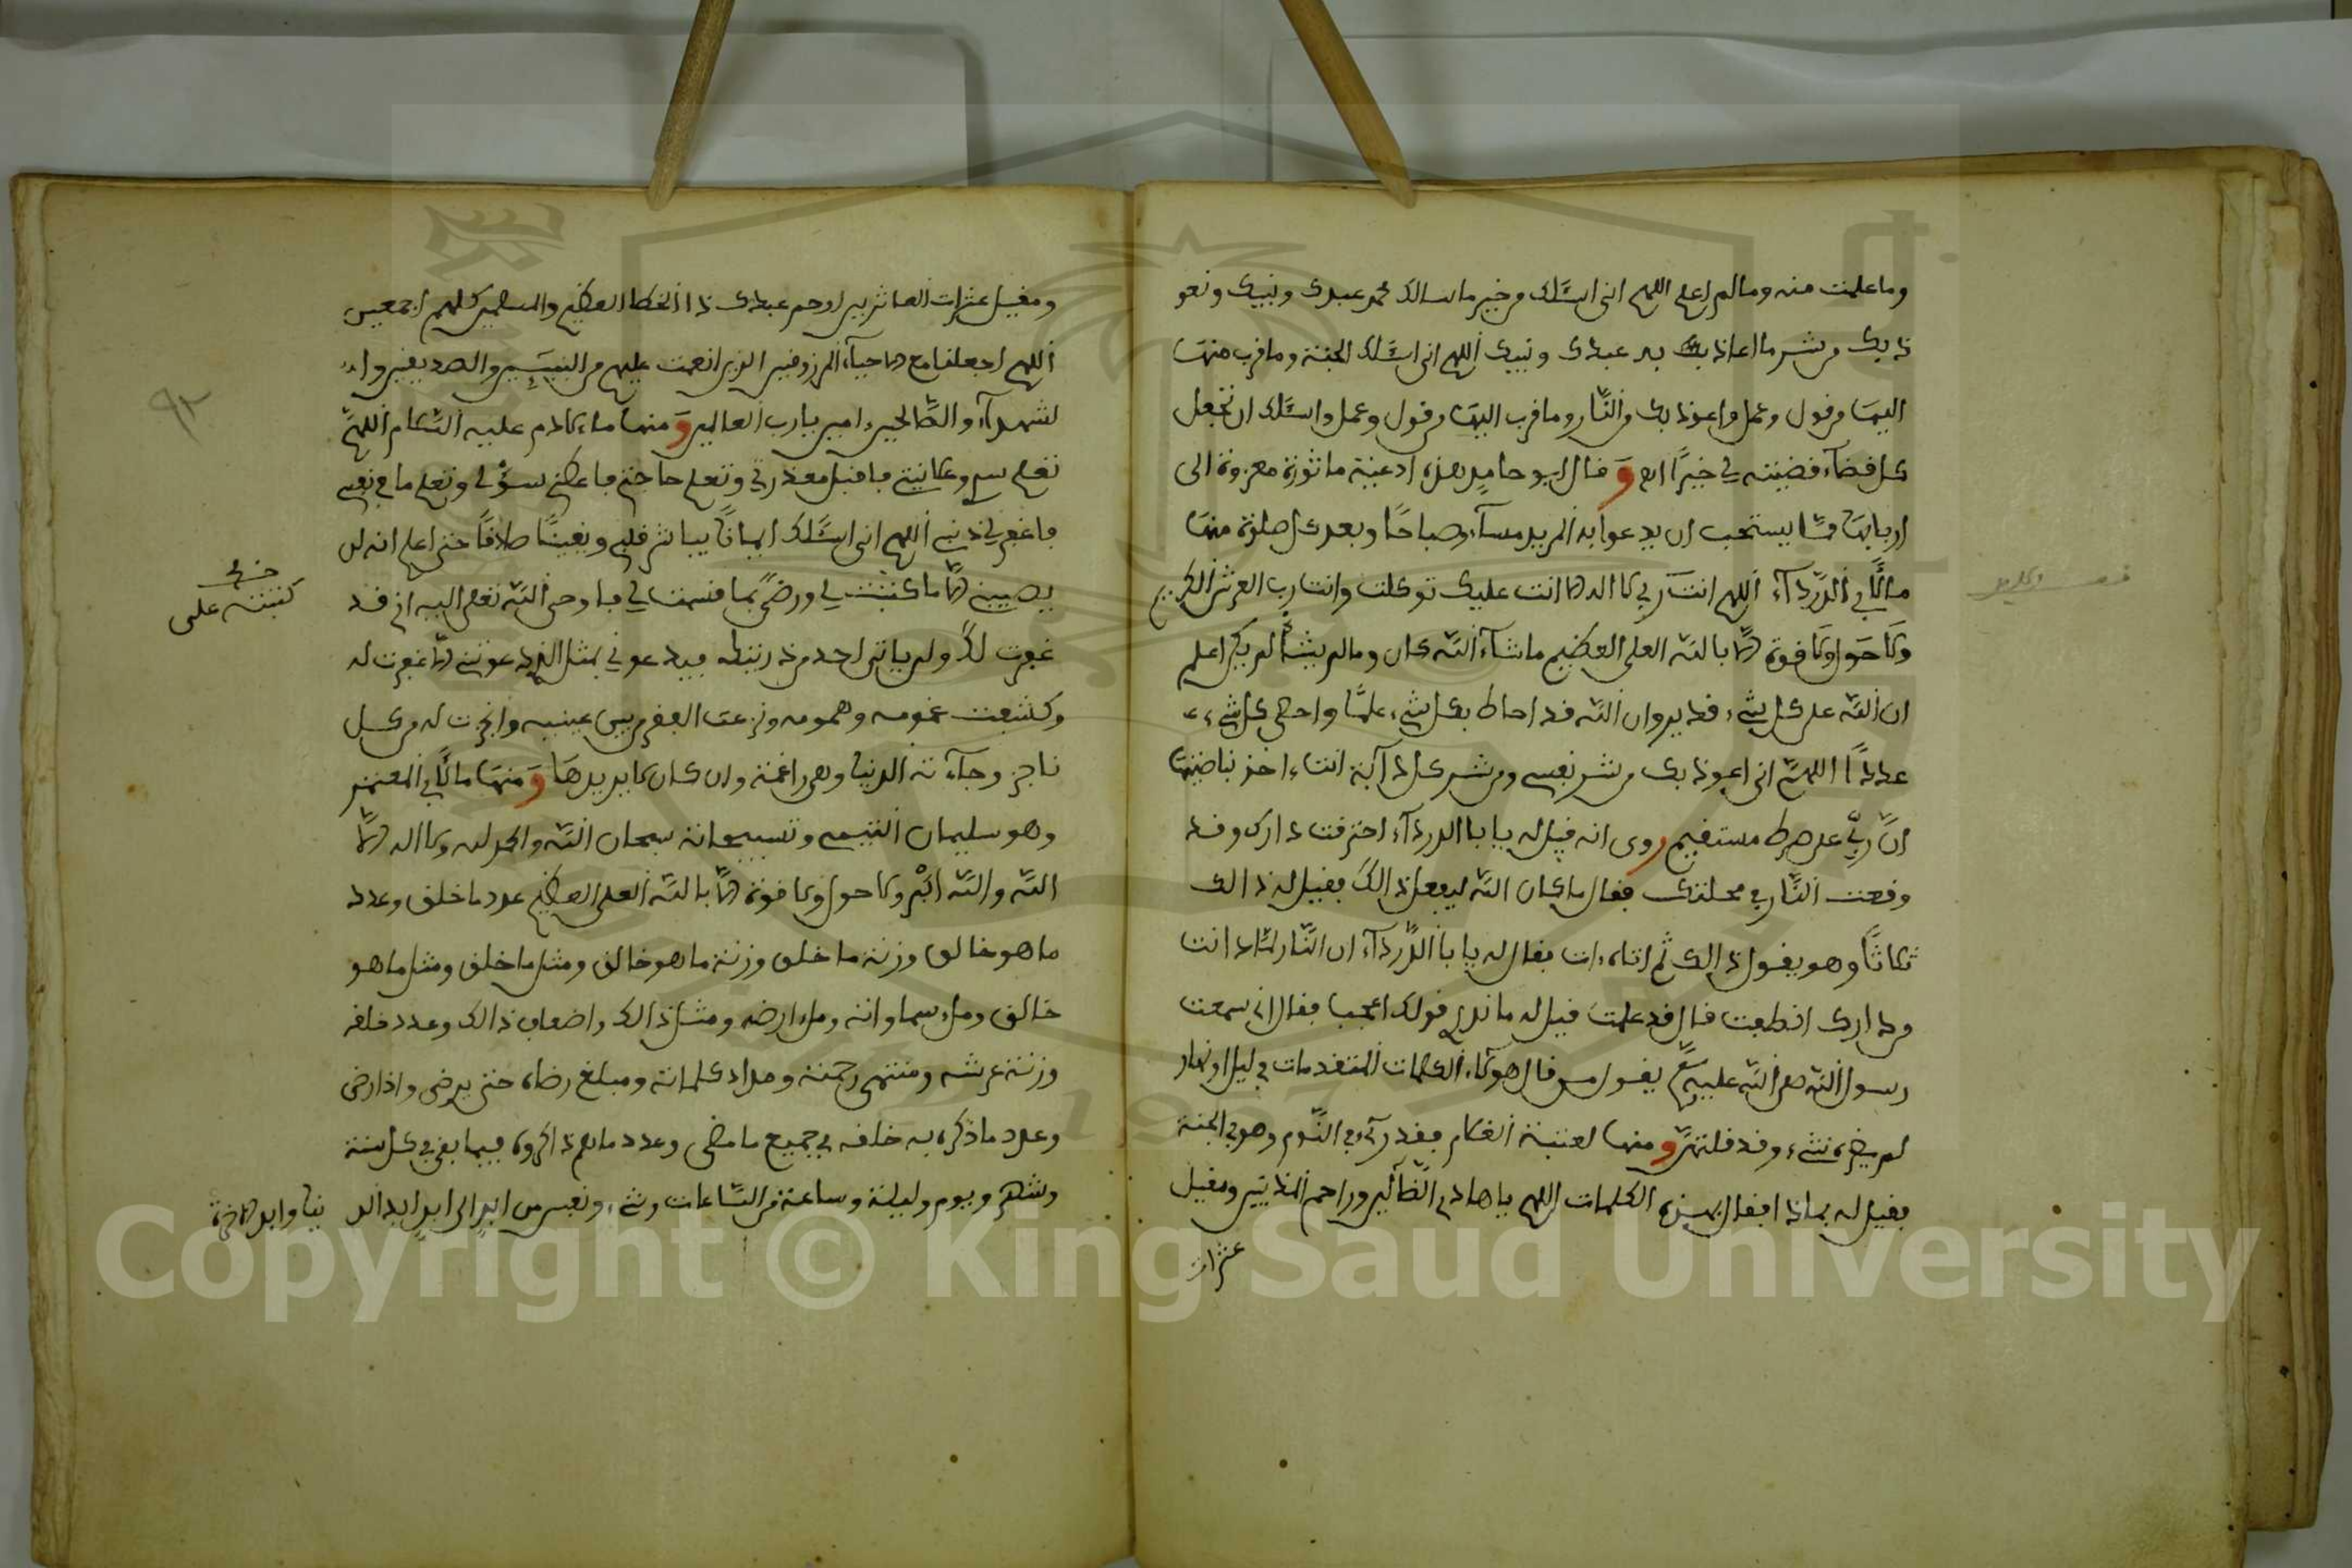 وما علمت منه وما لم اعلم اللهم انى اسئلك من خير ما سالك محمد عبدك ونبيك ونعو
ذ بك من شر ما اعاذ بك به عبدك ونبيك اللهم انى اسئلك الجنة وما قرب منها
اليها من قول وعمل واعوذ بك من النار وما قرب اليها من قول وعمل واسئلك ان تجعل
كل قضاء قضيته لي خيرا اه وقال ابو حامد هذه ادعية ماثورة معزوة الى
اربابها مما يستحب ان يدعو به المريد مساء وصباحا وبعد كل صلوة منها
ما لابي الدرداء اللهم انت ربي لا اله الا انت عليك توكلت وانت رب العرش الكريم
ولا حول ولا قوة الا بالله العلى العظيم ما شاء الله كان وما لم يشا لم يكن اعلم
ان الله على كل شيء قدير وان الله قد احاط بكل شيء علما واحصى كل شيء
عددا اللهم انى اعوذ بك من شر نفسي ومن شر كل دآبة انت ءاخذ بناصيتها
ان ربي على صرط مستقيم روى انه قيل له يا ابا الدرداء احترقت دارك وقد
وقعت النار في محلتك فقال ما كان الله ليفعل ذالك فقيل له ذالك
ثلاثا وهو يقول ذالك ثم اتاه ءات فقال له يا با الدرداء ان النار لما دانت
من دارك انطفت قال قد علمت قيل له ما ندرى قولك اعجب فقال انى سمعت
رسول الله صلى الله عليه وسلم يقول من قال هولاء الكلمات المتقدمات في ليل او نهار
لم يضره شيء وقد قلتهن ومنها لعتبة الغلام فقد رءي في النوم وهو في الجنة
فقيل له بماذا فقال بهذه الكلمات اللهم يا هادي الضالين وراحم المذنبين ومقيل
عثرات
ومقيل عثرات العاثرين ارحم عبدك ذا الخطر العظيم والمسلمين كلهم اجمعين
اللهم اجعلنا مع الاحياء المرزوقين الذين انعمت عليهم من النبيين والصديقين وا
لشهداء والصالحين ءامين يا رب العالمين ومنها ما لادم عليه السلام اللهم
تعلم سري وعلانيتي فاقبل معذرتي وتعلم حاجتي فاعطني سؤلي وتعلم ما في نفسي
فاغفر لي ذنبي اللهم انى اسئلك ايمانا يباشر قلبي ويقينا صادقا حتى اعلم انه لن
يصيبني الا ما كتبت لي ورضي بما قسمت لي فاوحى الله تعلى اليه انى قد
كتبته على
غفرت لك ولم يات احد من ذريتك فيدعوني بمثل الذي دعوتني الا غفرت له
وكشفت غمومه وهمومه ونزعت الفقر من بين عينيه واتجرت له من كل
تاجر وجاءته الدنيا وهي راغمة وان كان لا يريدها ومنها ما لابي المعتمر
وهو سليمان التيمي وتسبيحاته سبحان الله والحمد لله ولا اله الا
الله والله اكبر ولا حول ولا قوة الا بالله العلى العظيم عدد ما خلق وعدد
ما هو خالق وزنة ما خلق وزنة ما هو خالق ومثل ما خلق ومثل ما هو
خالق وملء سماواته وملء ارضه ومثل ذالك واضعاف ذالك وعدد خلقه
وزنة عرشه ومنتهى رحمته ومداد كلماته ومبلغ رضاه حتى يرضى واذا رضى
وعدد ما ذكره به خلقه في جميع ما مضى وعدد ما هم ذاكروه فيما بقي في كل سنة
وشهر ويوم وليلة وساعة من الساعات وشم ونفس من ابد الى ابد ابد الد نيا وابد الاخرة
٩٢